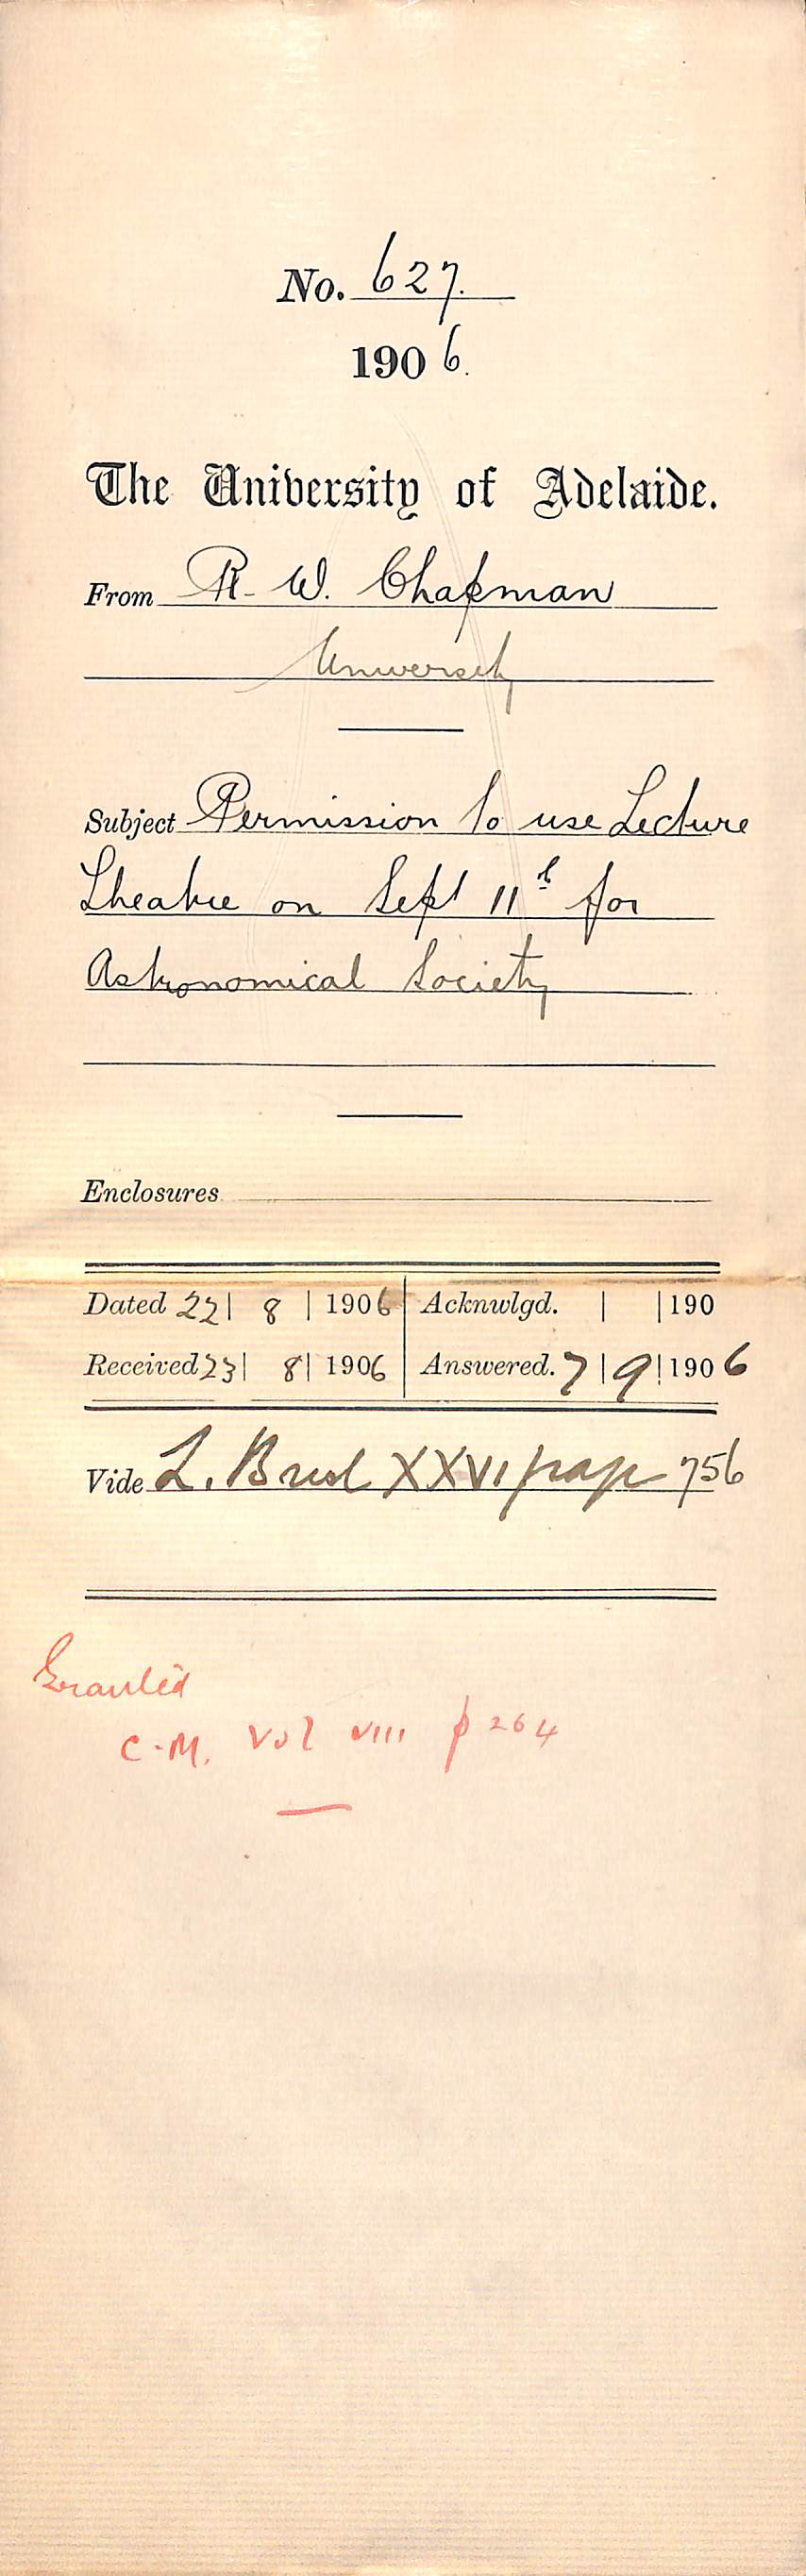 No. 627.
1906.
The University of Adelaide.
From R. W. Chapman
University
Subject Permission to use Lecture
Theatre on Sept 11th for
Astronomical Society
Enclosures
Dated 22| 8 | 1906 Acknwlgd. | |190
Received 23| 8| 1906 Answered. 7|9|1906
Vide L. Book XXVI page 756
Granted
C.M. Vol VIII p 264